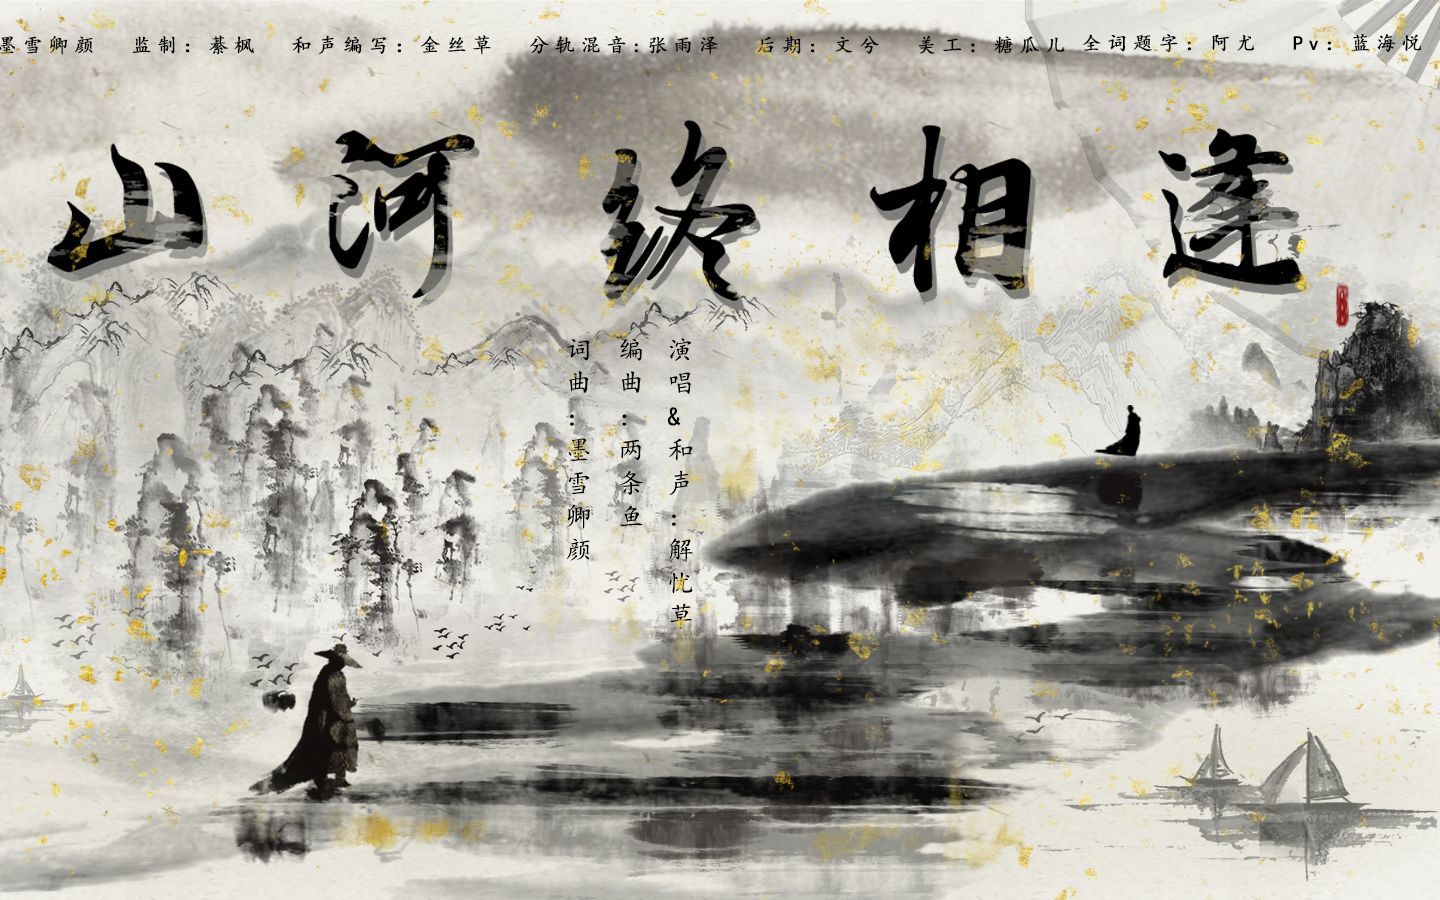 墨雪卿颜 监制：綦枫 和声编写：金丝草 分轨混音:张雨泽 后期：文兮 美工：糖瓜儿 全词题字：阿尤 Pv：蓝海悦
山河终相逢
演唱&和声：解忧草
编曲：两条鱼
词曲：墨雪卿颜